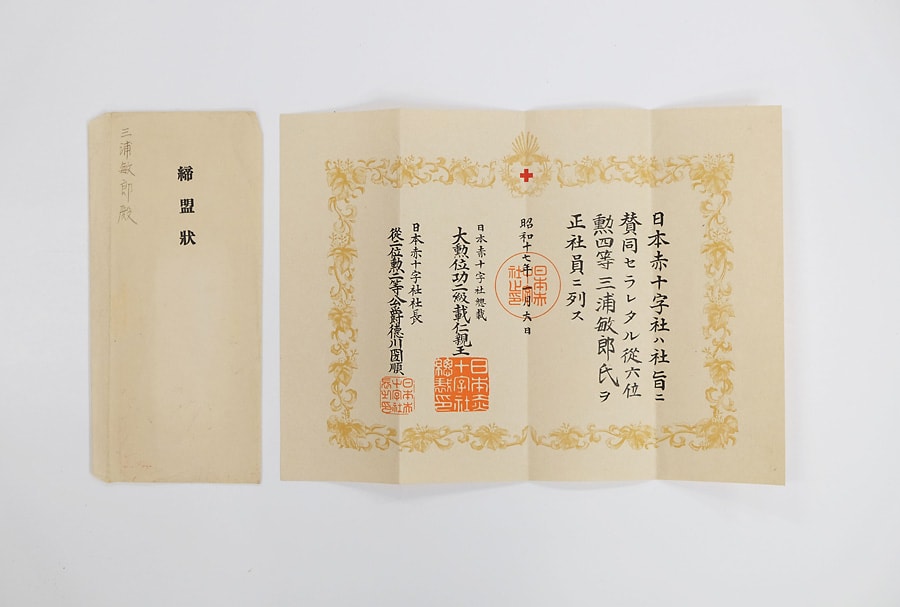 三浦敏郎殿
締盟狀
日本赤十字社ハ社旨ニ
賛同セラレタル從六位
勲四等三浦敏郎氏ヲ
正社員ニ列ス
昭和十七年一月六日
日本赤十字社總裁
大勲位功二級載仁親王
日本赤十字社社長
從一位勲一等公爵徳川圀順
日本赤
社之印
日本赤
十字社
總裁印
日本赤
十字社
長之印